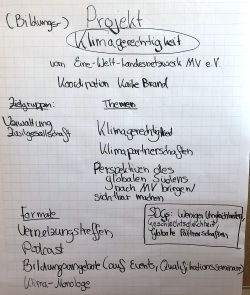 (Bildungs-) Projekt
Klimagerechtigkeit
vom Eine-Welt-Landesnetzwerk MV e.V.
Koordination Kaike Brand
Zielgruppen:
Verwaltung
Zivilgesellschaft
Themen
Klimagerechtigkeit
Klimapartnerschaften
Perspektiven des
globalen Südens
nach MV bringen/
sichtbar machen
Formate
Vernetzungstreffen,
Podcast
Bildungsangebote (auf Events, Qualifikationsseminare)
Klima-Monologe
SDGs: Weniger Ungleichheiten,
Geschlechtergleichheit,
globale Partnerschaften